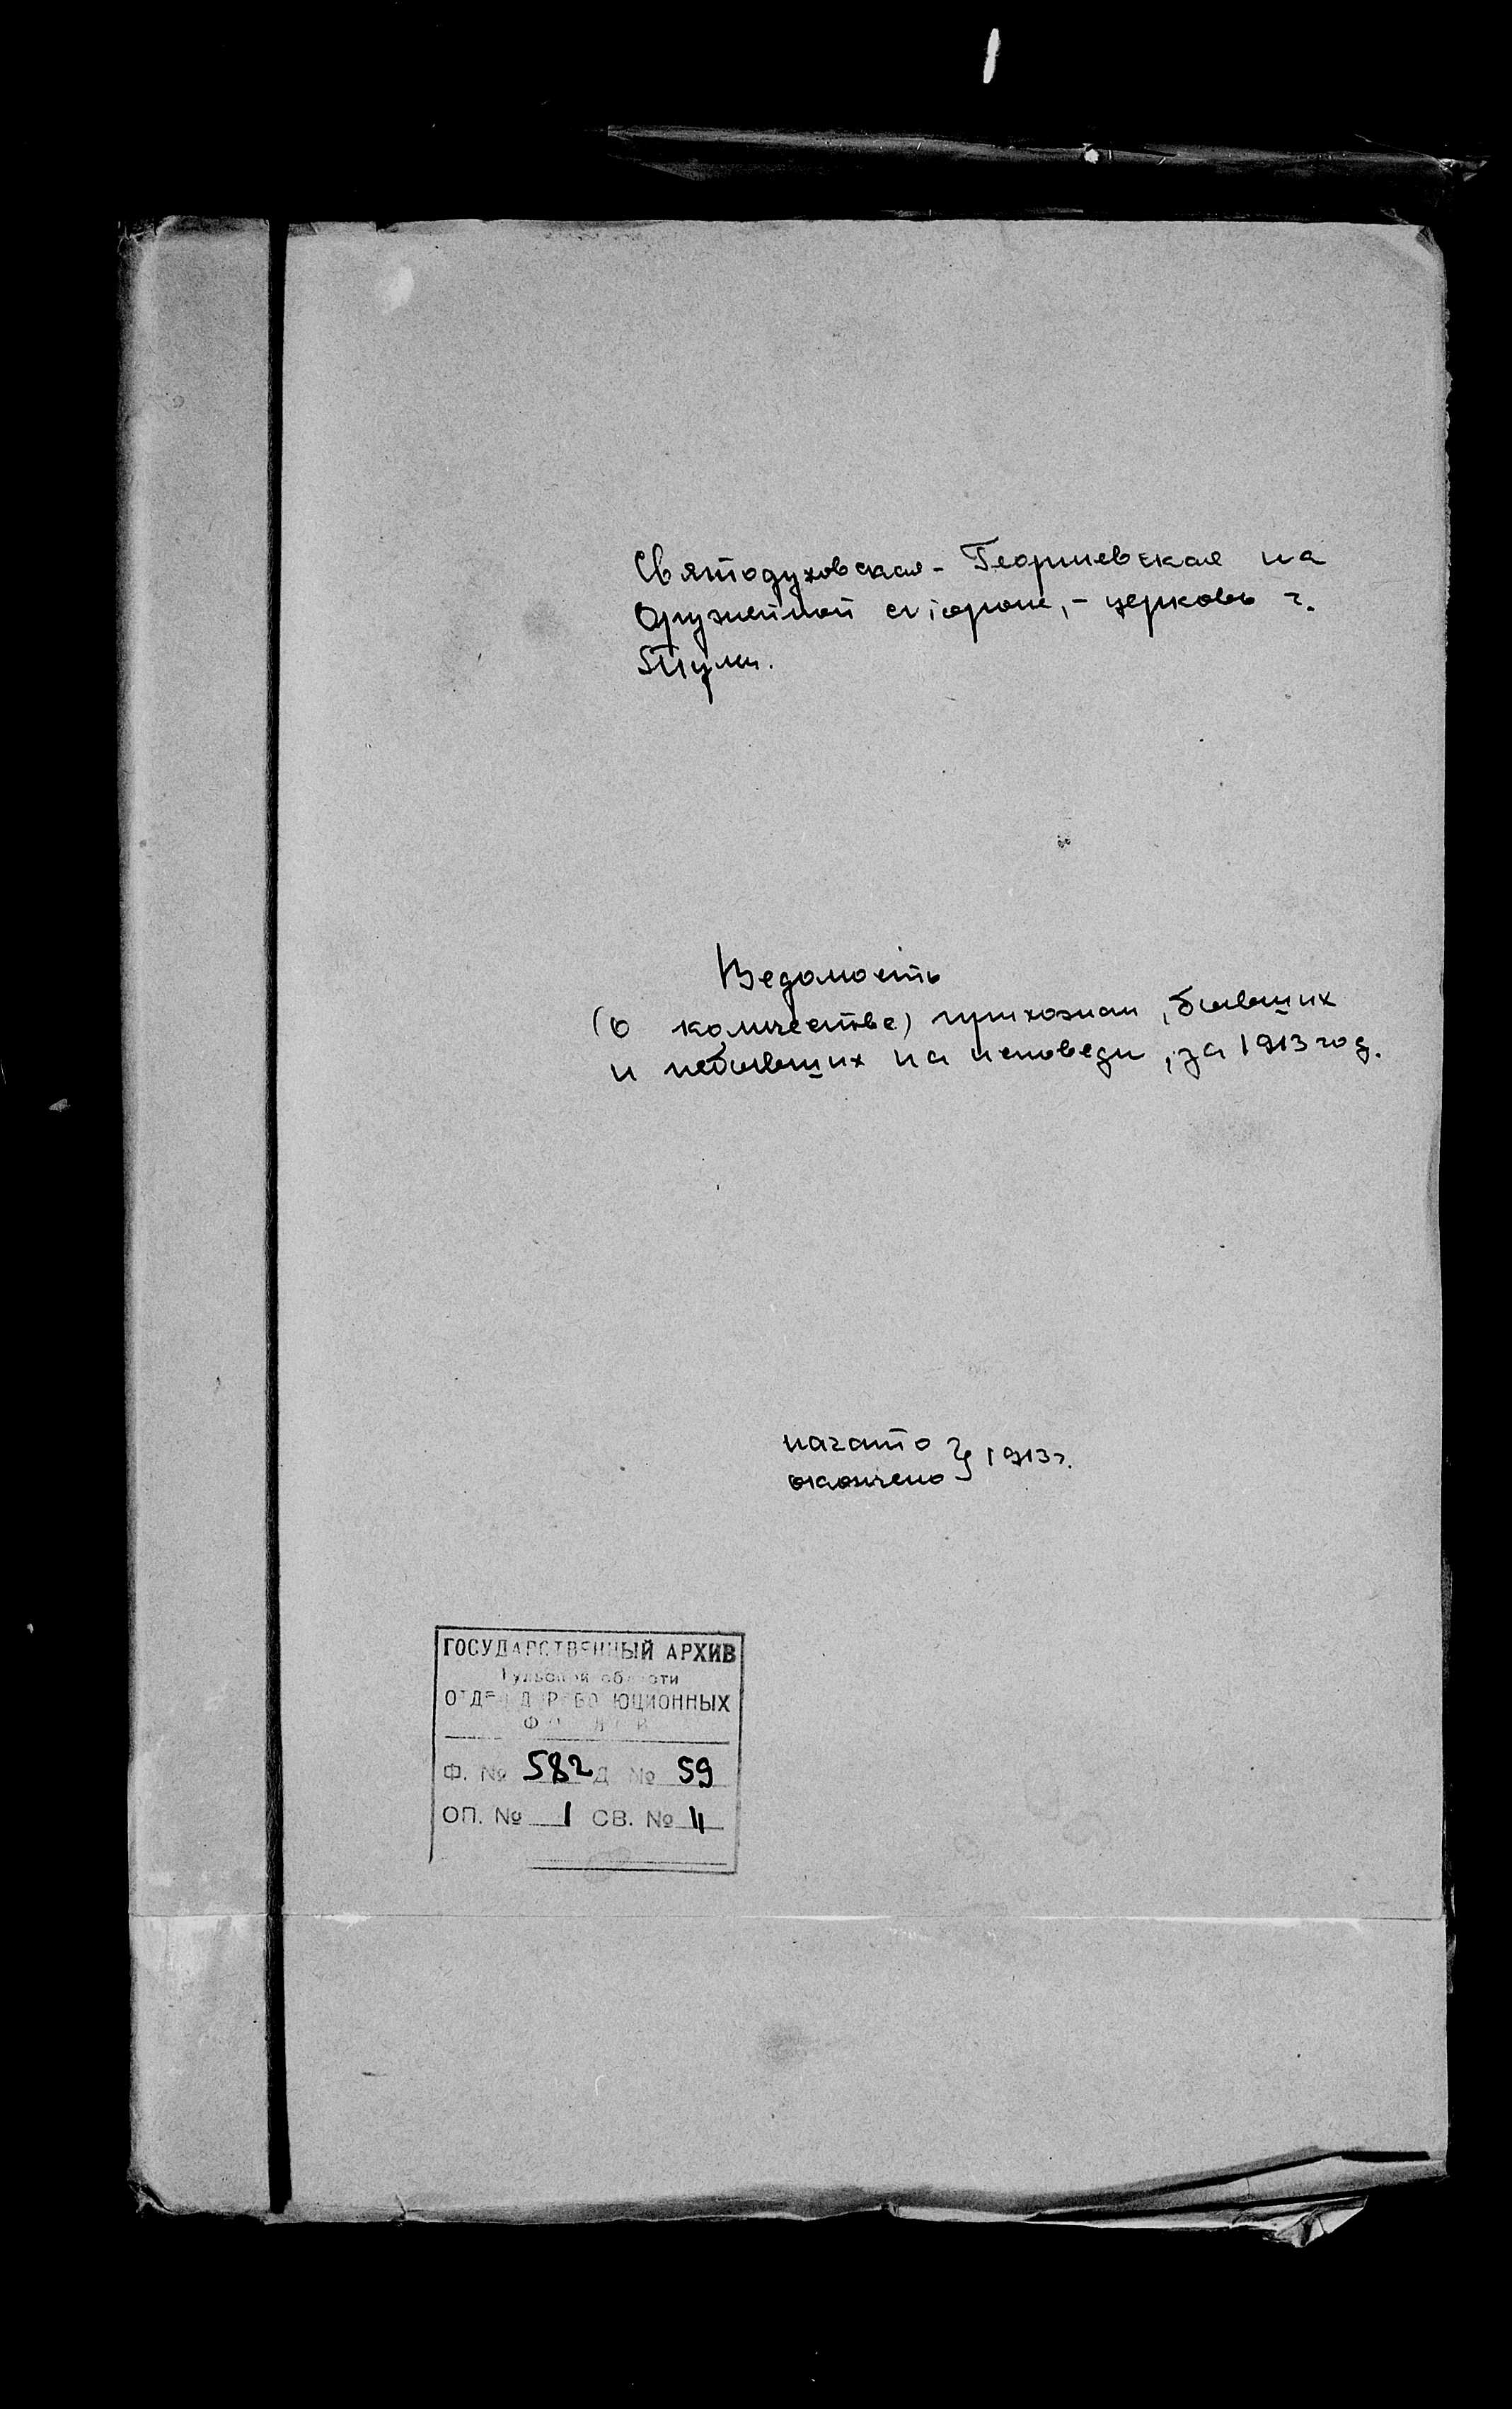 Святодуховская - Георгиевская на
Оружейной стороне, - церковь г.
Тулы.
Ведомость
(о количестве) прихожан, бывших
и небывших на исповеди, за 1913 год.
начато } 1913 г.
окончено
ГОСУДАРСТВЕННЫЙ АРХИВ
Тульской области
ОТДЕЛ ДОРЕВОЛЮЦИОННЫХ
ФОНДОВ
Ф. № 582 Д № 59
ОП. № 1 СВ. № 4